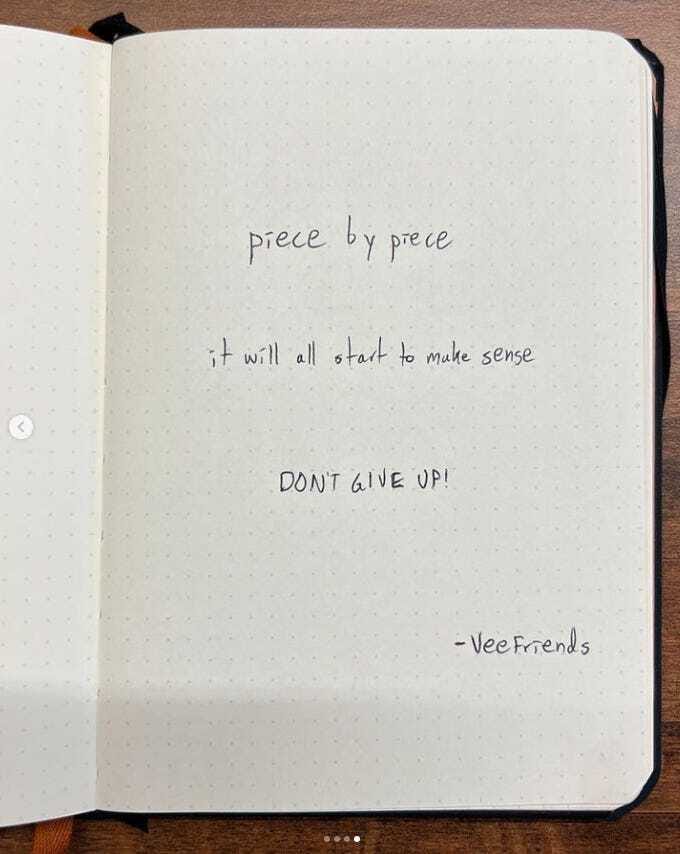 piece by piece
it will all start to make sense
DON'T GIVE UP!
-VeeFriends